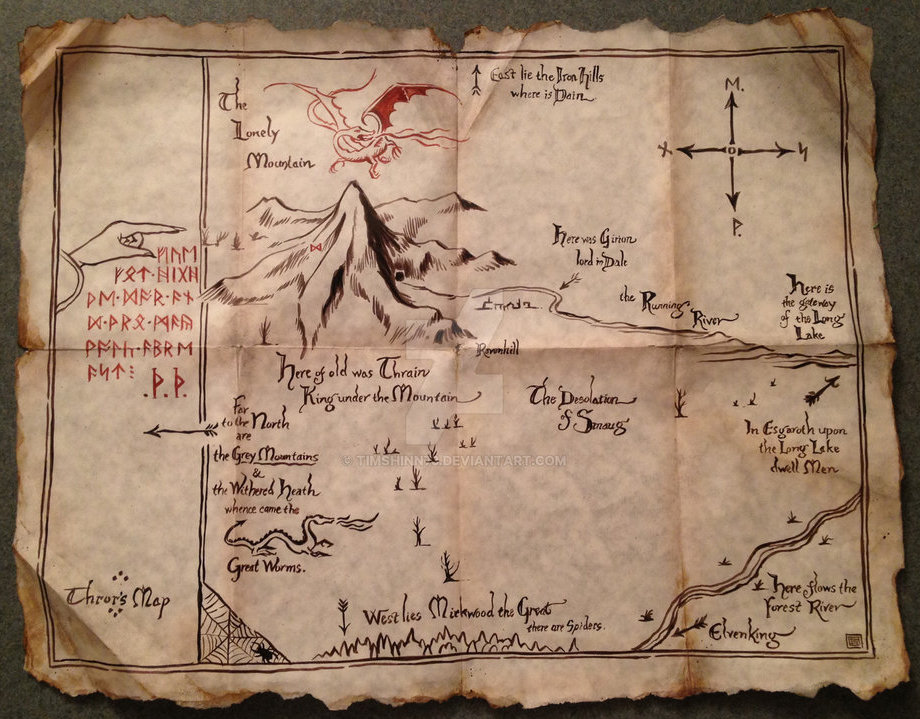 The
Lonely
Mountain
East lie the Iron Hills
where is Dain.
ᛗ.
ᚾ
ᛋ
ᚹ.
ᛞ
ᚠᛁᚢᛖ
ᚠᚩᛏ·ᚻᛁᚷᚻ
ᚦᛖ·ᛞᚩᚱ·ᚪᚾ
ᛞ·ᚦᚱᛟ·ᛗᚪᚣ
ᚹᚪᛚᚳ·ᚪᛒᚱᛖ
ᚪᛋᛏ᛬
.ᚦ.ᚦ.
Here was Girion
lord in Dale
the Running
River
Here is
the gateway
of the Long
Lake
Ravenhill
Here of old was Thrain
King under the Mountain
The Desolation
of Smaug
Far
to the North
are
the Grey Mountains
&
the Withered Heath
whence came the
Great Worms.
In Esgaroth upon
the Long Lake
dwell Men
© TIMSHINN73.DEVIANTART.COM
Thror's Map
West lies Mirkwood the Great
there are Spiders.
Here flows the
Forest River
Elvenking